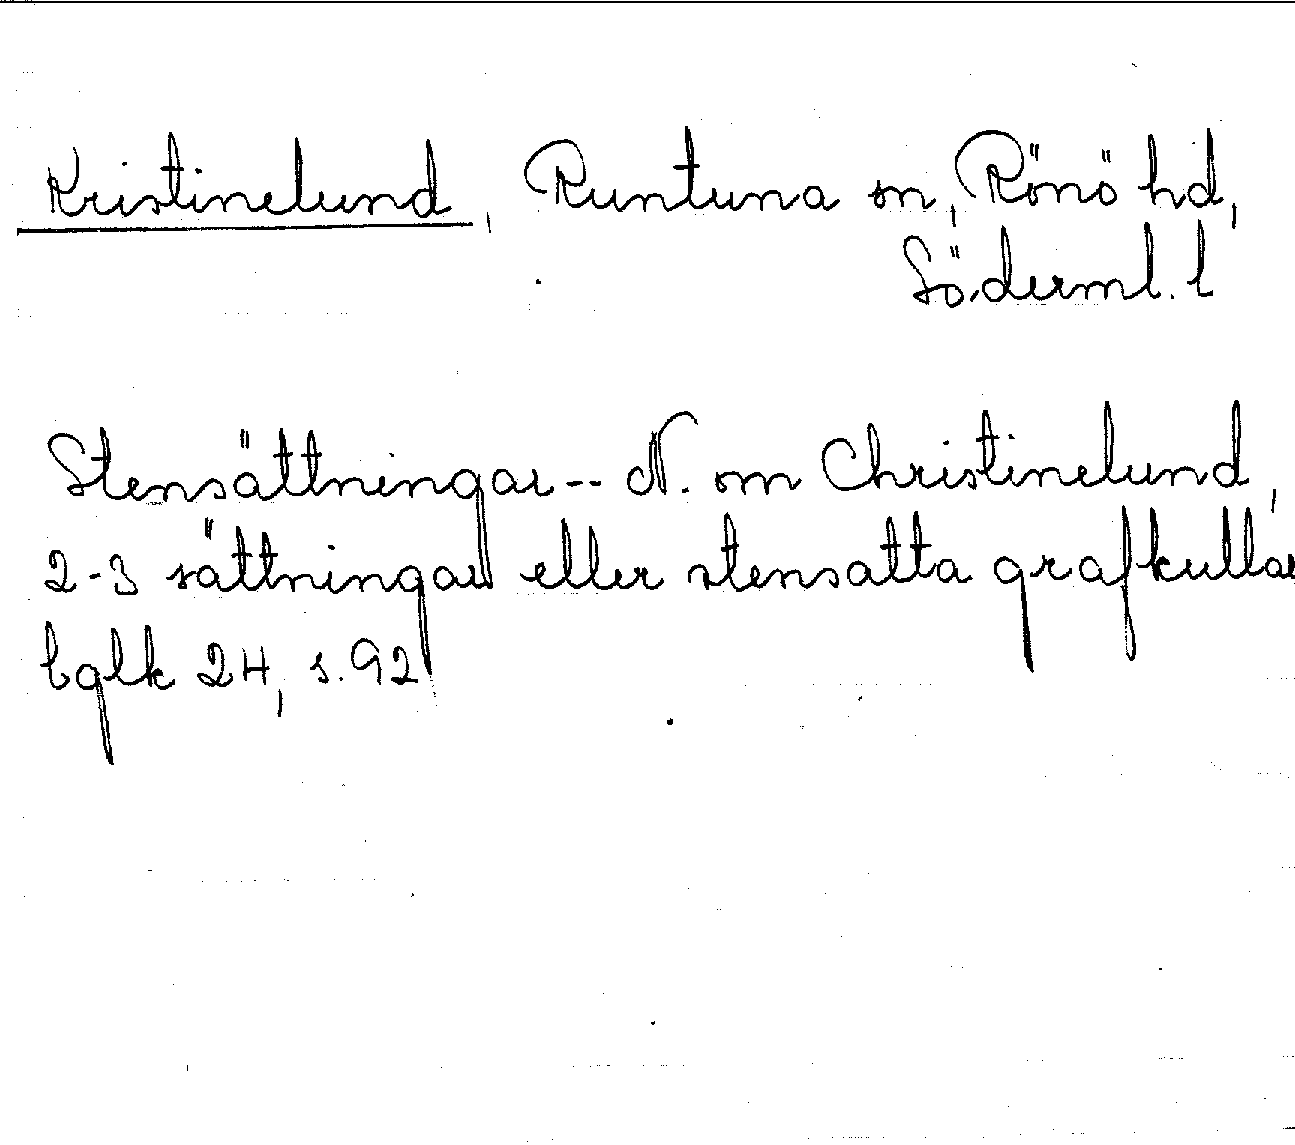 Kristinelund, Runtuna sn, Rönö hd,
Söderml. l
Stensättningar -- N. om Christinelund,
2-3 sättningar eller stensatta grafkullar
bglk 24, s. 92